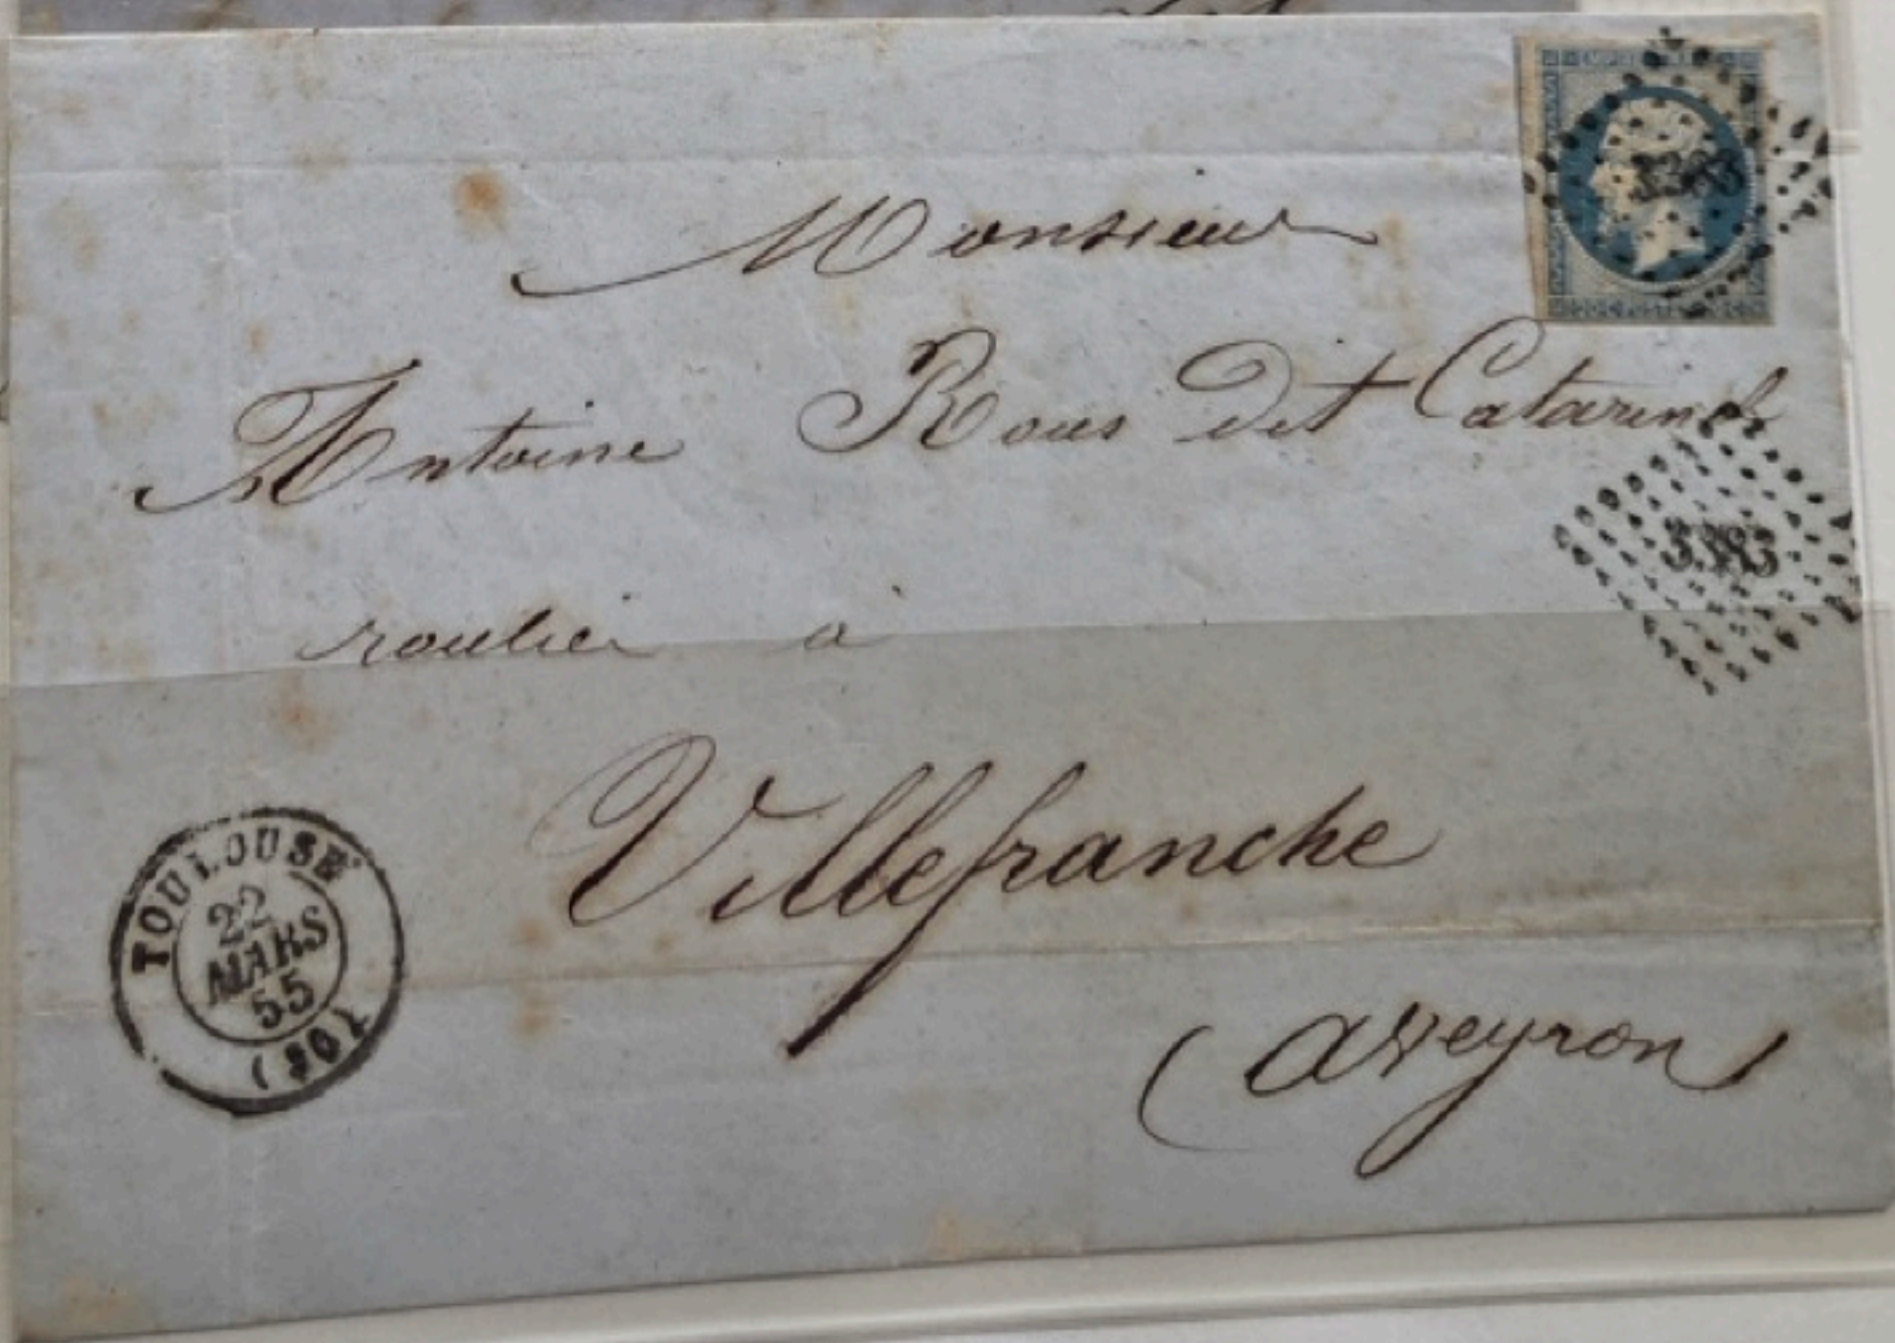 3383
Monsieur
Antoine Rous dit Catarinet
3383
roulier à
Villefranche
(aveyron)
TOULOUSE
22
MARS
55
(30)